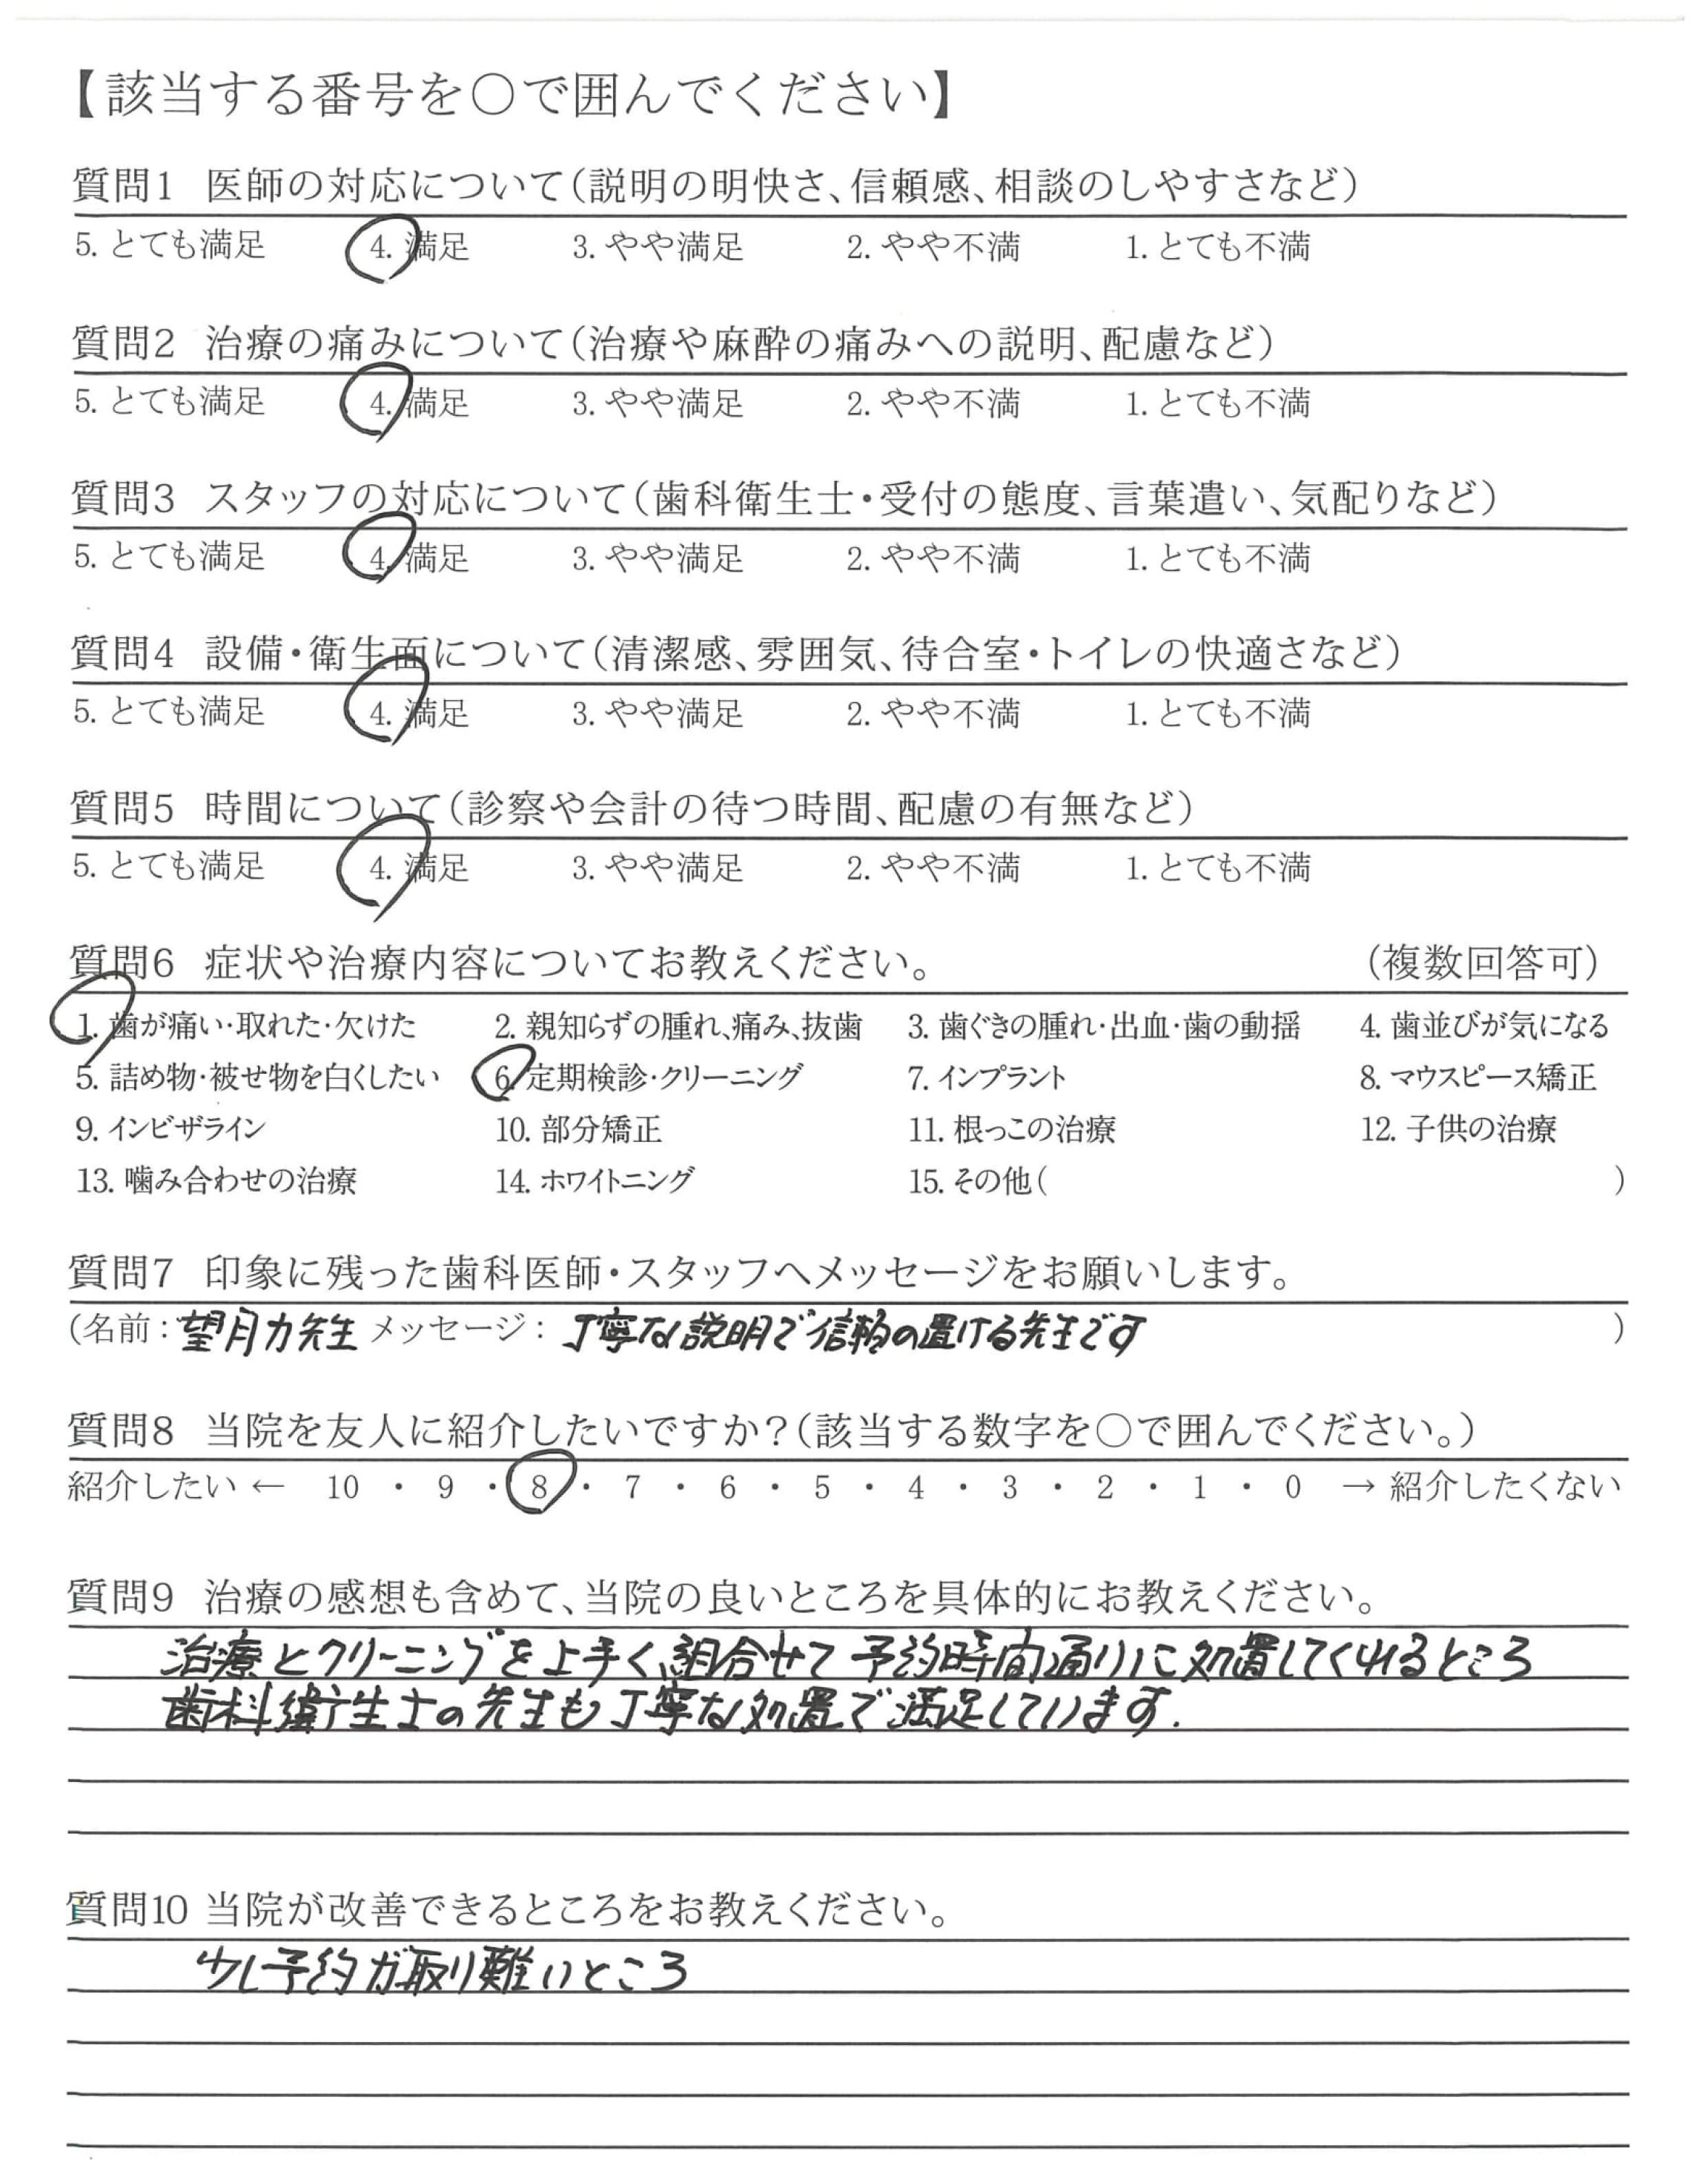 【該当する番号を○で囲んでください】
質問1 医師の対応について(説明の明快さ、信頼感、相談のしやすさなど)
5. とても満足 4. 満足 3. やや満足 2. やや不満 1. とても不満
質問2 治療の痛みについて(治療や麻酔の痛みへの説明、配慮など)
5. とても満足 4. 満足 3. やや満足 2. やや不満 1. とても不満
質問3 スタッフの対応について(歯科衛生士・受付の態度、言葉遣い、気配りなど)
5. とても満足 4. 満足 3. やや満足 2. やや不満 1. とても不満
質問4 設備・衛生面について(清潔感、雰囲気、待合室・トイレの快適さなど)
5. とても満足 4. 満足 3. やや満足 2. やや不満 1. とても不満
質問5 時間について(診察や会計の待つ時間、配慮の有無など)
5. とても満足 4. 満足 3. やや満足 2. やや不満 1. とても不満
質問6 症状や治療内容についてお教えください。 (複数回答可)
1. 歯が痛い・取れた・欠けた 2. 親知らずの腫れ、痛み、抜歯 3. 歯ぐきの腫れ・出血・歯の動揺 4. 歯並びが気になる
5. 詰め物・被せ物を白くしたい 6. 定期検診・クリーニング 7. インプラント 8. マウスピース矯正
9. インビザライン 10. 部分矯正 11. 根っこの治療 12. 子供の治療
13. 噛み合わせの治療 14. ホワイトニング 15. その他( )
質問7 印象に残った歯科医師・スタッフへメッセージをお願いします。
(名前：望月力先生 メッセージ：丁寧な説明で信頼の置ける先生です )
質問8 当院を友人に紹介したいですか？(該当する数字を○で囲んでください。)
紹介したい ← 10 ・ 9 ・ 8 ・ 7 ・ 6 ・ 5 ・ 4 ・ 3 ・ 2 ・ 1 ・ 0 → 紹介したくない
質問9 治療の感想も含めて、当院の良いところを具体的にお教えください。
治療とクリーニングを上手く組合せて予約時間通りに処置してくれるところ
歯科衛生士の先生も丁寧な処置で満足しています.
質問10 当院が改善できるところをお教えください。
少し予約が取り難いところ